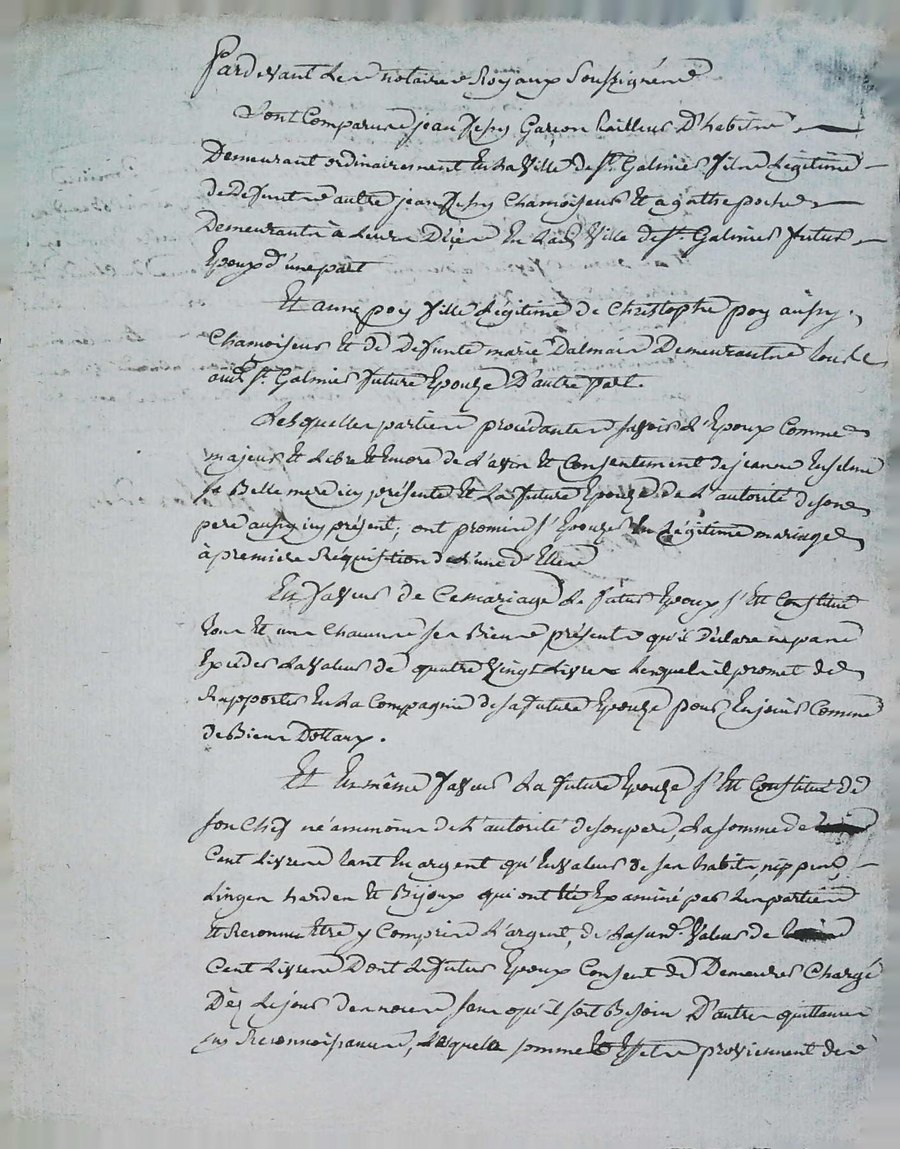 Pardevant Les notaires Royaux Soussignés
Sont Comparus jean Garçon tailleur D'habits
Demeurant ordinairement En La Ville de st. Galmier fils Légitime
de Defunt autre jean Chamoiseur Et agathe
Demeurants à Leurs Décès En Lad. Ville de st. Galmier futur
Epoux d'une part
Et anne poy fille Légitime de Christophe poy aussy
Chamoiseur Et de Defunte marie Dalmais Demeurante
aud. st. Galmier future Epouze D'autre part.
Lesquelles parties procédantes savoir L'Epoux Comme
majeur Et Libre Et Encore de L'avis Et Consentement de jeanne
sa Belle mere icy présente Et La future Epouze de L'autorité de son
pere aussy icy présent, ont promis s'Epouzer En Légitime mariage
à premiere Réquisition de L'une d'Elles
En faveur de Ce mariage Le futur Epoux s'Est Constitué
tous Et un Chacuns ses Biens présents qu'il Déclare ne pas
Excéder La valeur de quatre vingt Livres Lesquels il promet de
Rapporter En La Compagnie de sa future Epouze pour En jouir Comme
de Biens Dottaux.
Et En même faveur La future Epouze s'Est Constitué de
son Chef néammoins de L'autorité de son pere, La somme de
Cent Livres tant En argent qu'En valeur de ses habits, nippes,
Linges hardes Et Bijoux qui ont Eté Examiné par Les parties
Et Reconnu Etre y Compris L'argent, de La susd. Valeur de
Cent Livres Dont Le futur Epoux Consent de Demeurer Chargé
Dès Le jour des noces sans qu'il soit Besoin D'autre quittance
ny Reconnoissance, Laquelle somme Et Effets proviennent de